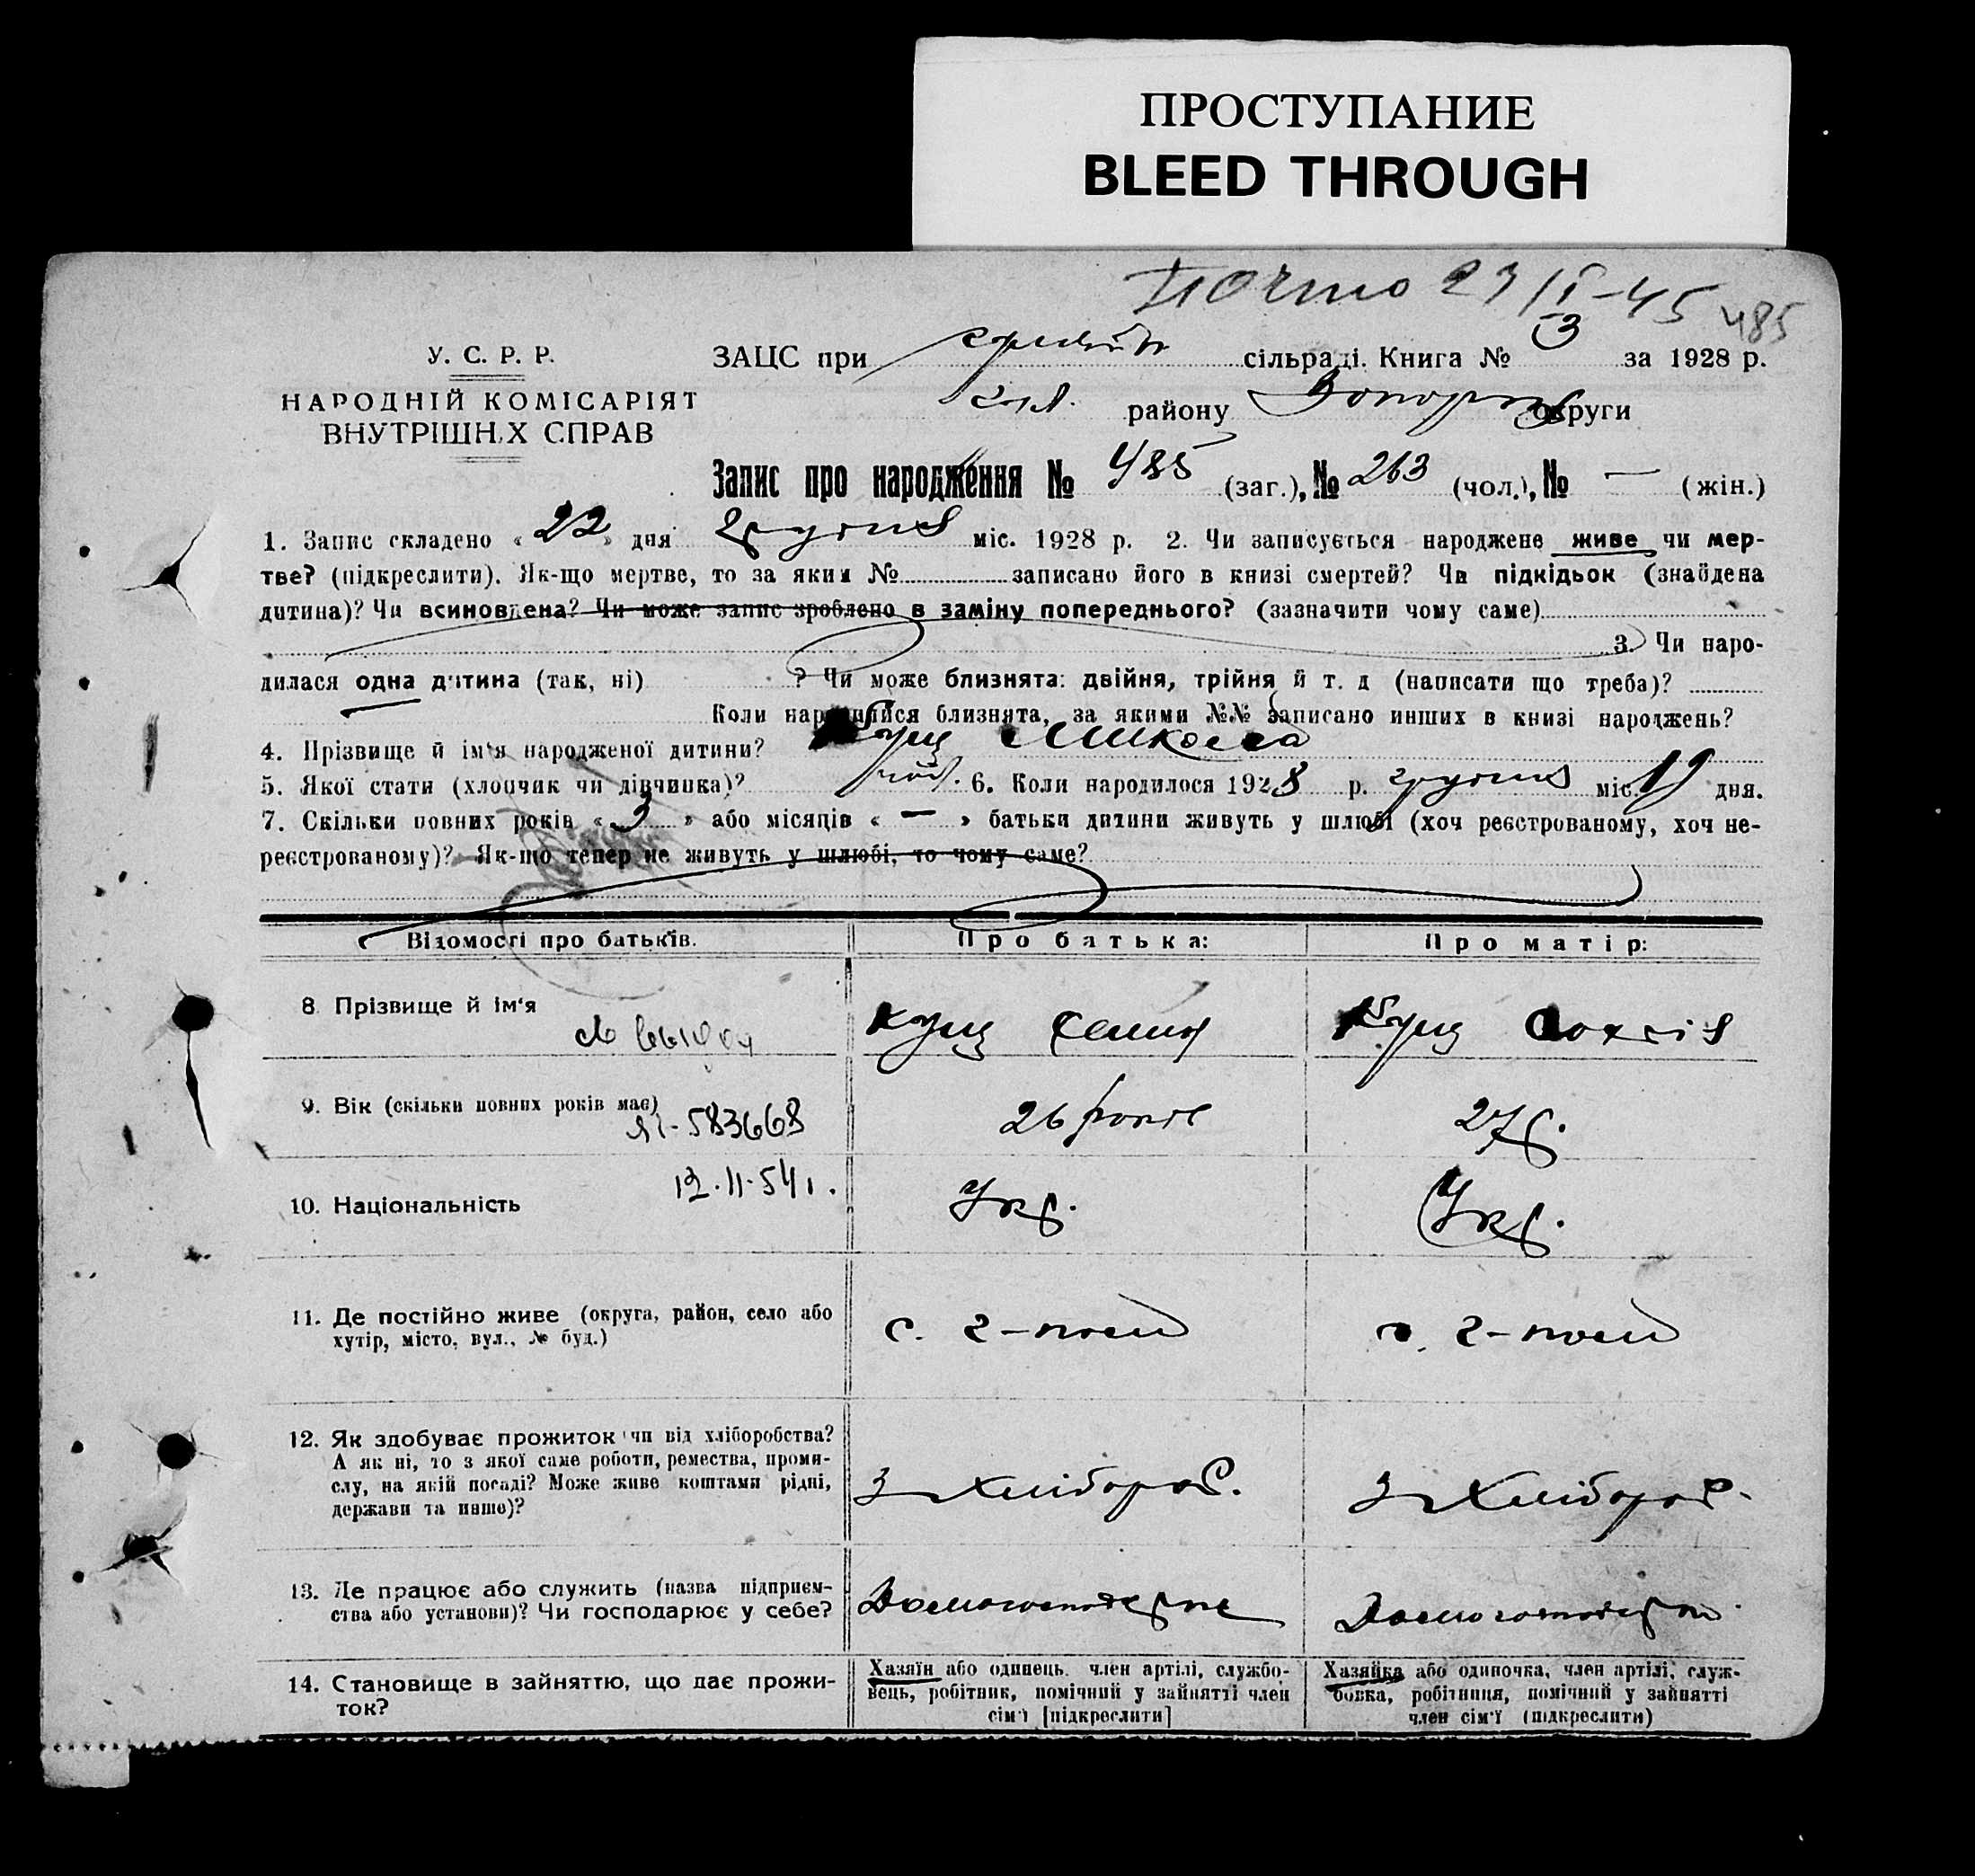 ПРОСТУПАНИЕ
BLEED THROUGH
23/I-45 485
У. С. Р. Р.
НАРОДНІЙ КОМІСАРІЯТ
ВНУТРІШНіХ СПРАВ
ЗАЦС при сільраді. Книга № 3 за 1928 р.
району округи
Запис про народження № 485 (заг.), № 263 (чол.), № — (жін.)
1. Запис складено « 22 » дня грудня міс. 1928 р. 2. Чи записується народжене живе чи мер-
тве? (підкреслити). Як-що мертве, то за яким № записано його в книзі смертей? Чи підкідьок (знайдена
дитина)? Чи всиновлена? Чи може запис зроблено в заміну попереднього? (зазначити чому саме)
3. Чи наро-
дилася одна дитина (так, ні) ? Чи може близнята: двійня, трійня й т. д (написати що треба)?
Коли народилися близнята, за якими №№ записано инших в книзі народжень?
4. Прізвище й ім'я народженої дитини? Кущ Микола
5. Якої стати (хлопчик чи дівчинка)? чол. 6. Коли народилося 1928 р. грудня міс. 19 дня.
7. Скільки повних років « 3 » або місяців « — » батьки дитини живуть у шлюбі (хоч реєстрованому, хоч не-
реєстрованому)? Як-що тепер не живуть у шлюбі, то чому саме?
Відомості про батьків. Про батька: Про матір:
8. Прізвище й ім'я Кущ Семен Кущ
9. Вік (скільки повних років має) 583668 26 років 27 р.
10. Національність 12.11.54 Укр. Укр.
11. Де постійно живе (округа, район, село або
хутір, місто, вул., № буд.) с. г-поль с. г-поль
12. Як здобуває прожиток чи від хліборобства?
А як ні, то з якої саме роботи, ремества, проми-
слу, на якій посаді? Може живе коштами рідні,
держави та инше)?
З хлібороб. З хлібороб.
13. Де працює або служить (назва підприєм-
ства або установи)? Чи господарює у себе?
14. Становище в зайняттю, що дає прожи-
ток?
Хазяїн або одинець, член артілі, службо-
вець, робітник, помічний у зайнятті член
сім'ї [підкреслити]
Хазяйка або одиночка, член артілі, служ-
бовка, робітниця, помічний у зайнятті
член сім'ї (підкреслити)